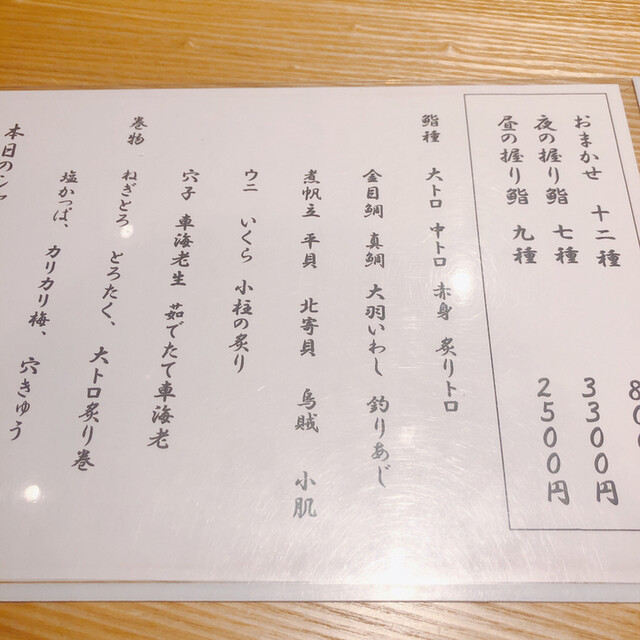 おまかせ 十二種
夜の握り鮨 七種 3300円
昼の握り鮨 九種 2500円
鮨種 大トロ 中トロ 赤身 炙りトロ
金目鯛 真鯛 大羽いわし 釣りあじ
煮帆立 平貝 北寄貝 烏賊 小肌
ウニ いくら 小柱の炙り
穴子 車海老生 茹でたて車海老
巻物 ねぎとろ とろたく、 大トロ炙り巻
塩かっぱ、 カリカリ梅、 穴きゅう
本日の